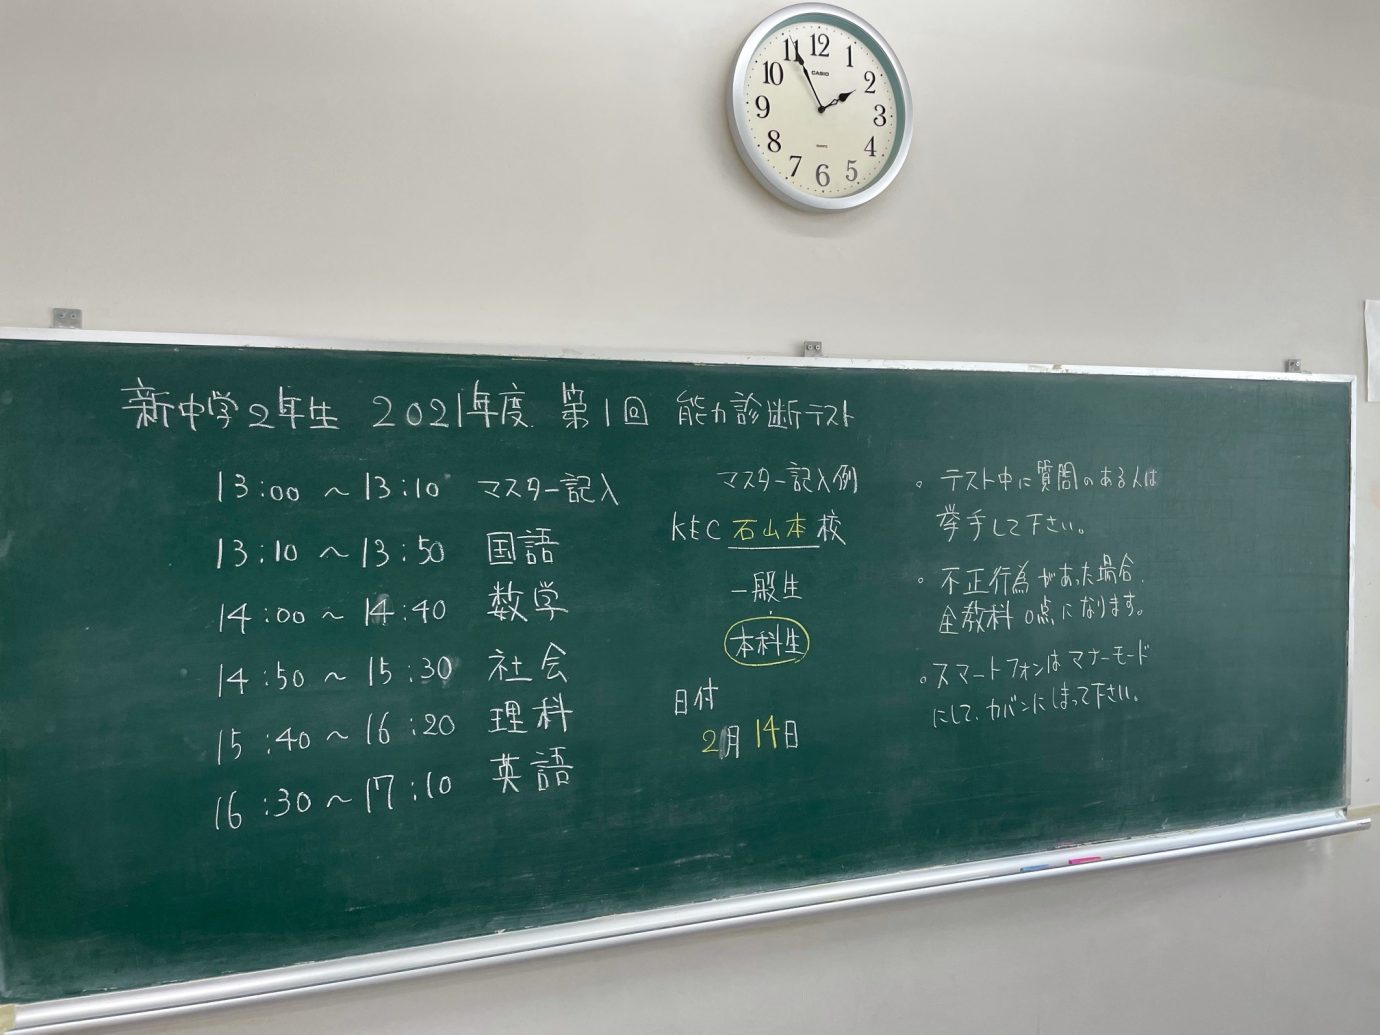 12
1
2
3
4
5
6
7
8
9
10
11
CASIO
新中学2年生 2021年度 第1回 能力診断テスト
13:00 ~ 13:10 マスター記入
13:10 ~ 13:50 国語
14:00 ~ 14:40 数学
14:50 ~ 15:30 社会
15:40 ~ 16:20 理科
16:30 ~ 17:10 英語
マスター記入例
KEC 石山本校
一般生
本科生
日付
2月14日
。テスト中に質問のある人は
挙手して下さい。
。不正行為があった場合、
全教科0点になります。
。スマートフォンはマナーモード
にして、カバンにしまって下さい。